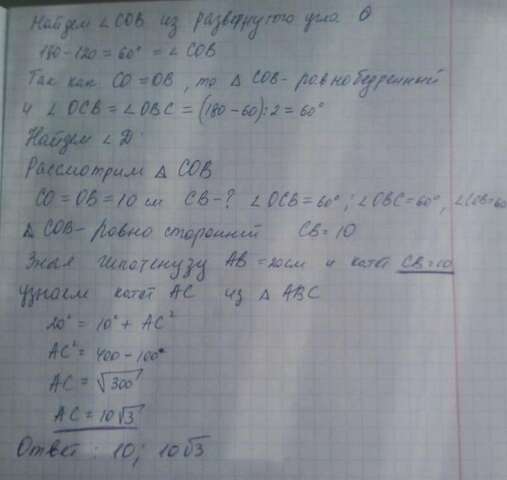 Найдем ∠COB из развернутого угла O
180-120=60° = ∠COB
Так как CO=OB, то △ COB- равнобедренный
и ∠OCB=∠OBC=(180-60):2=60°
Найдем ∠D:
Рассмотрим △ COB
CO=OB=10 см CB-? ∠OCB=60°; ∠OBC=60°, ∠COB=60
△ COB- равно сторонний CB=10
Зная гипотенузу AB=20см и катет CB=10
узнаем катет AC из △ ABC
20²=10²+AC²
AC²=400-100
AC=√300
AC=10√3
Ответ: 10; 10√3